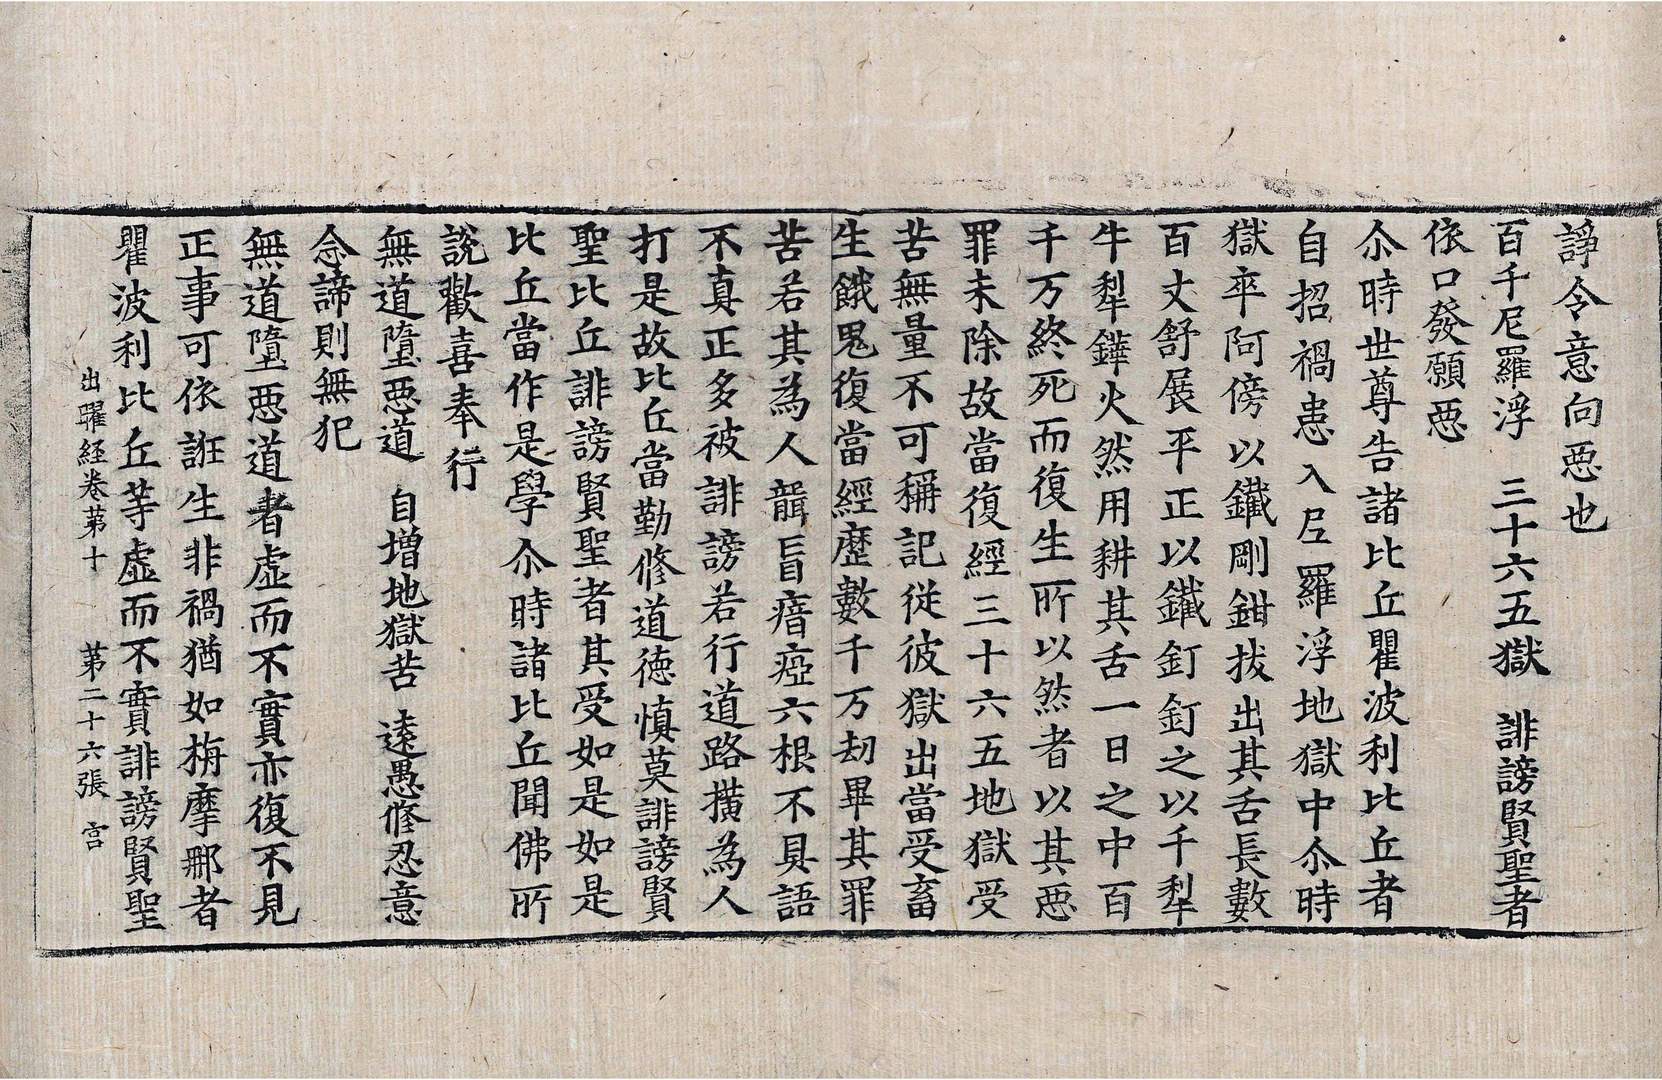 諍令意向惡也
百千尼羅浮　三十六五獄　誹謗賢聖者
依口發願惡
尒時世尊告諸比丘瞿波利比丘者
自招禍患入𡰱羅浮地獄中尒時
獄卒阿傍以鐵剛鉗拔出其舌長數
百丈舒展平正以鐵釘釘之以千犁
牛犁鏵火然用耕其舌一日之中百
千万終死而復生所以然者以其惡
罪未除故當復經三十六五地獄受
苦無量不可稱記従彼獄出當受畜
生餓鬼復當經歷數千万劫畢其罪
苦若其為人聾盲瘖瘂六根不具語
不真正多被誹謗若行道路撗為人
打是故比丘當勤修道德慎莫誹謗賢
聖比丘誹謗賢聖者其受如是如是
比丘當作是學尒時諸比丘聞佛所
說歡喜奉行
無道墮惡道　自增地獄苦　遠愚修忍意
念諦則無犯
無道墮惡道者虛而不實亦復不見
正事可依誑生非禍猶如梅摩䣭者
瞿波利比丘等虛而不實誹謗賢聖
出曜経卷苐十　苐二十六張　宫